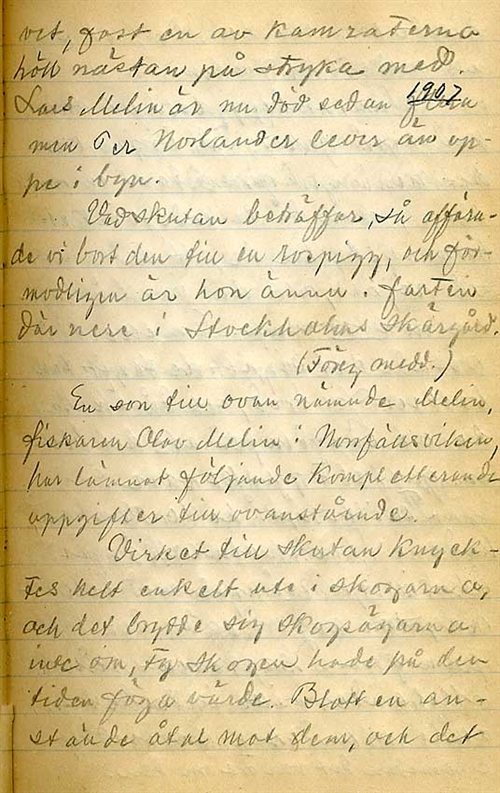 vet, fast en av kamraterna
höll nästan på stryka med.
Lars Melin är nu död sedan 1907
men Per Norlander lever än up-
pe i byn.
Vad skutan beträffar, så affära-
de vi bort den till en rospigg, och för-
modligen är hon ännu i farten
där nere i Stockholms skärgård.
(Töny medd.)
En son till ovan nämnde Melin,
fiskaren Olov Melin i Norrfällsviken,
har lämnat följande kompletterande
uppgifter till ovanstående.
Virket till skutan knyck-
tes helt enkelt ute i skogarna,
och det brydde sig skogsägarna
inte om, ty skogen hade på den
tiden föga värde. Blott en an-
stände åtal mot dem, och det